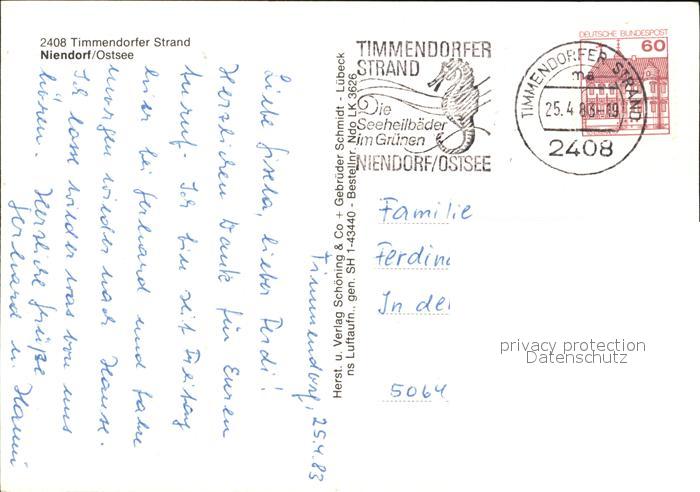 2408 Timmendorfer Strand
Niendorf/Ostsee
Timmendorf, 25.4.83
Liebe Gisela, lieber Ferdi!
Herzlichen Dank für Euren
Anruf. Ich bin seit Freitag
hier bei Gerhard und fahre
morgen wieder nach Hause.
Ich lasse wieder was von uns
hören. Herzliche Grüße
Gerhard u. Hanni
Herst. u. Verlag Schöning & Co + Gebrüder Schmidt - Lübeck
ns Luftaufn., gen. SH 1-43440 - Bestellnr. Ndo LK 3626
TIMMENDORFER
STRAND
Die
Seeheilbäder
im Grünen
NIENDORF/OSTSEE
TIMMENDORFER STRAND
ma
25.4.83-19
2408
DEUTSCHE BUNDESPOST
60
Familie
Ferdin
In de
5064
privacy protection
Datenschutz